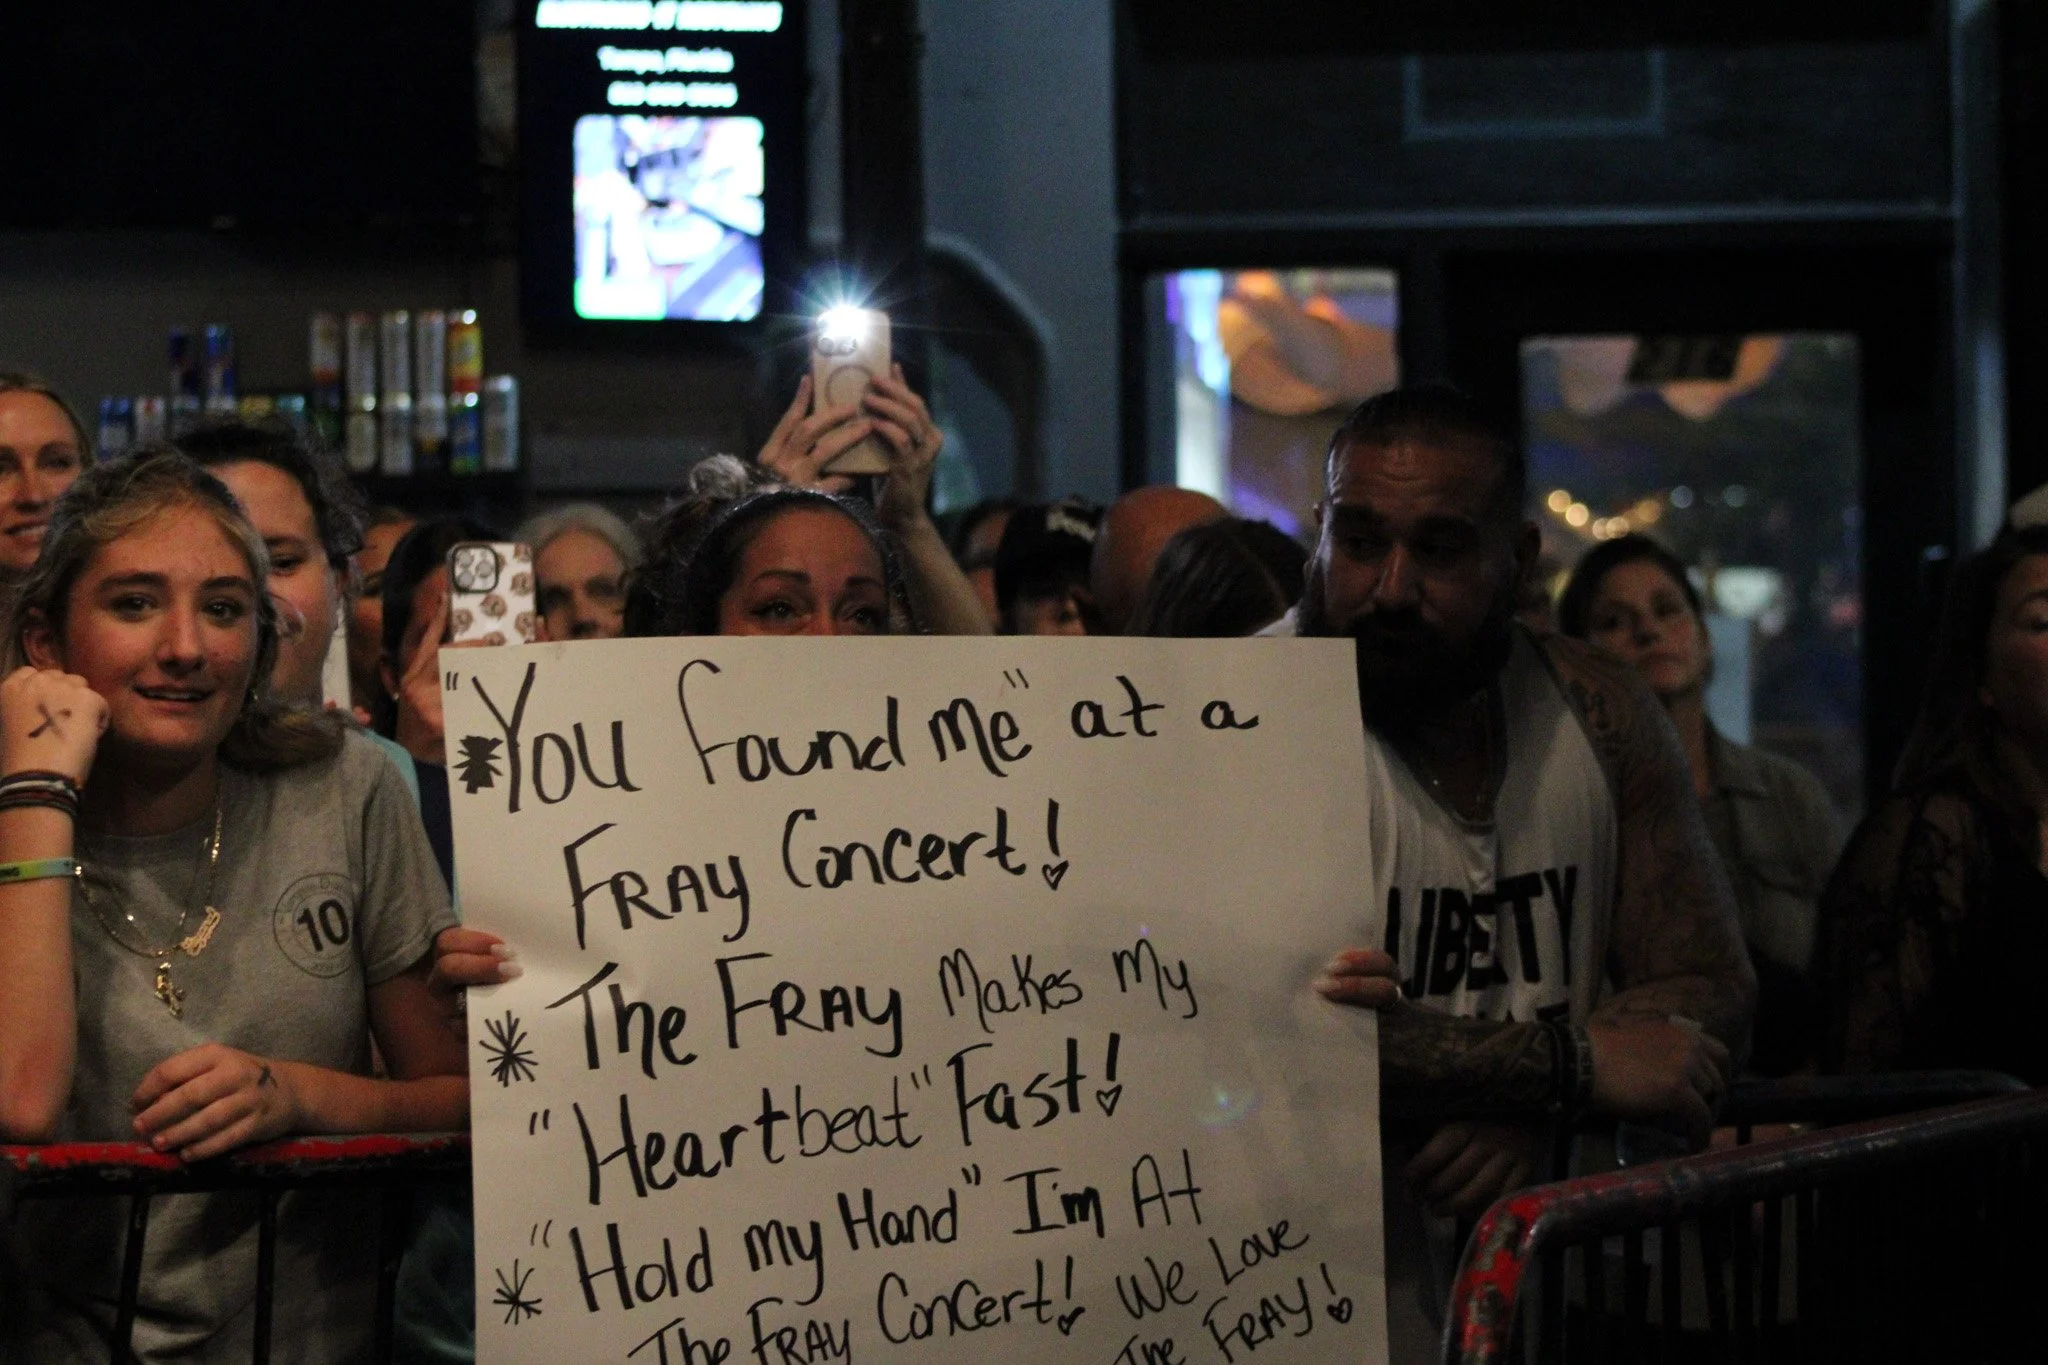 Tampa, Florida
"You found me" at a
FRAY Concert!
The FRAY Makes My
"Heartbeat" Fast!
"Hold my Hand" I'm At
The FRAY Concert! We Love
The FRAY!
10
LIBERTY